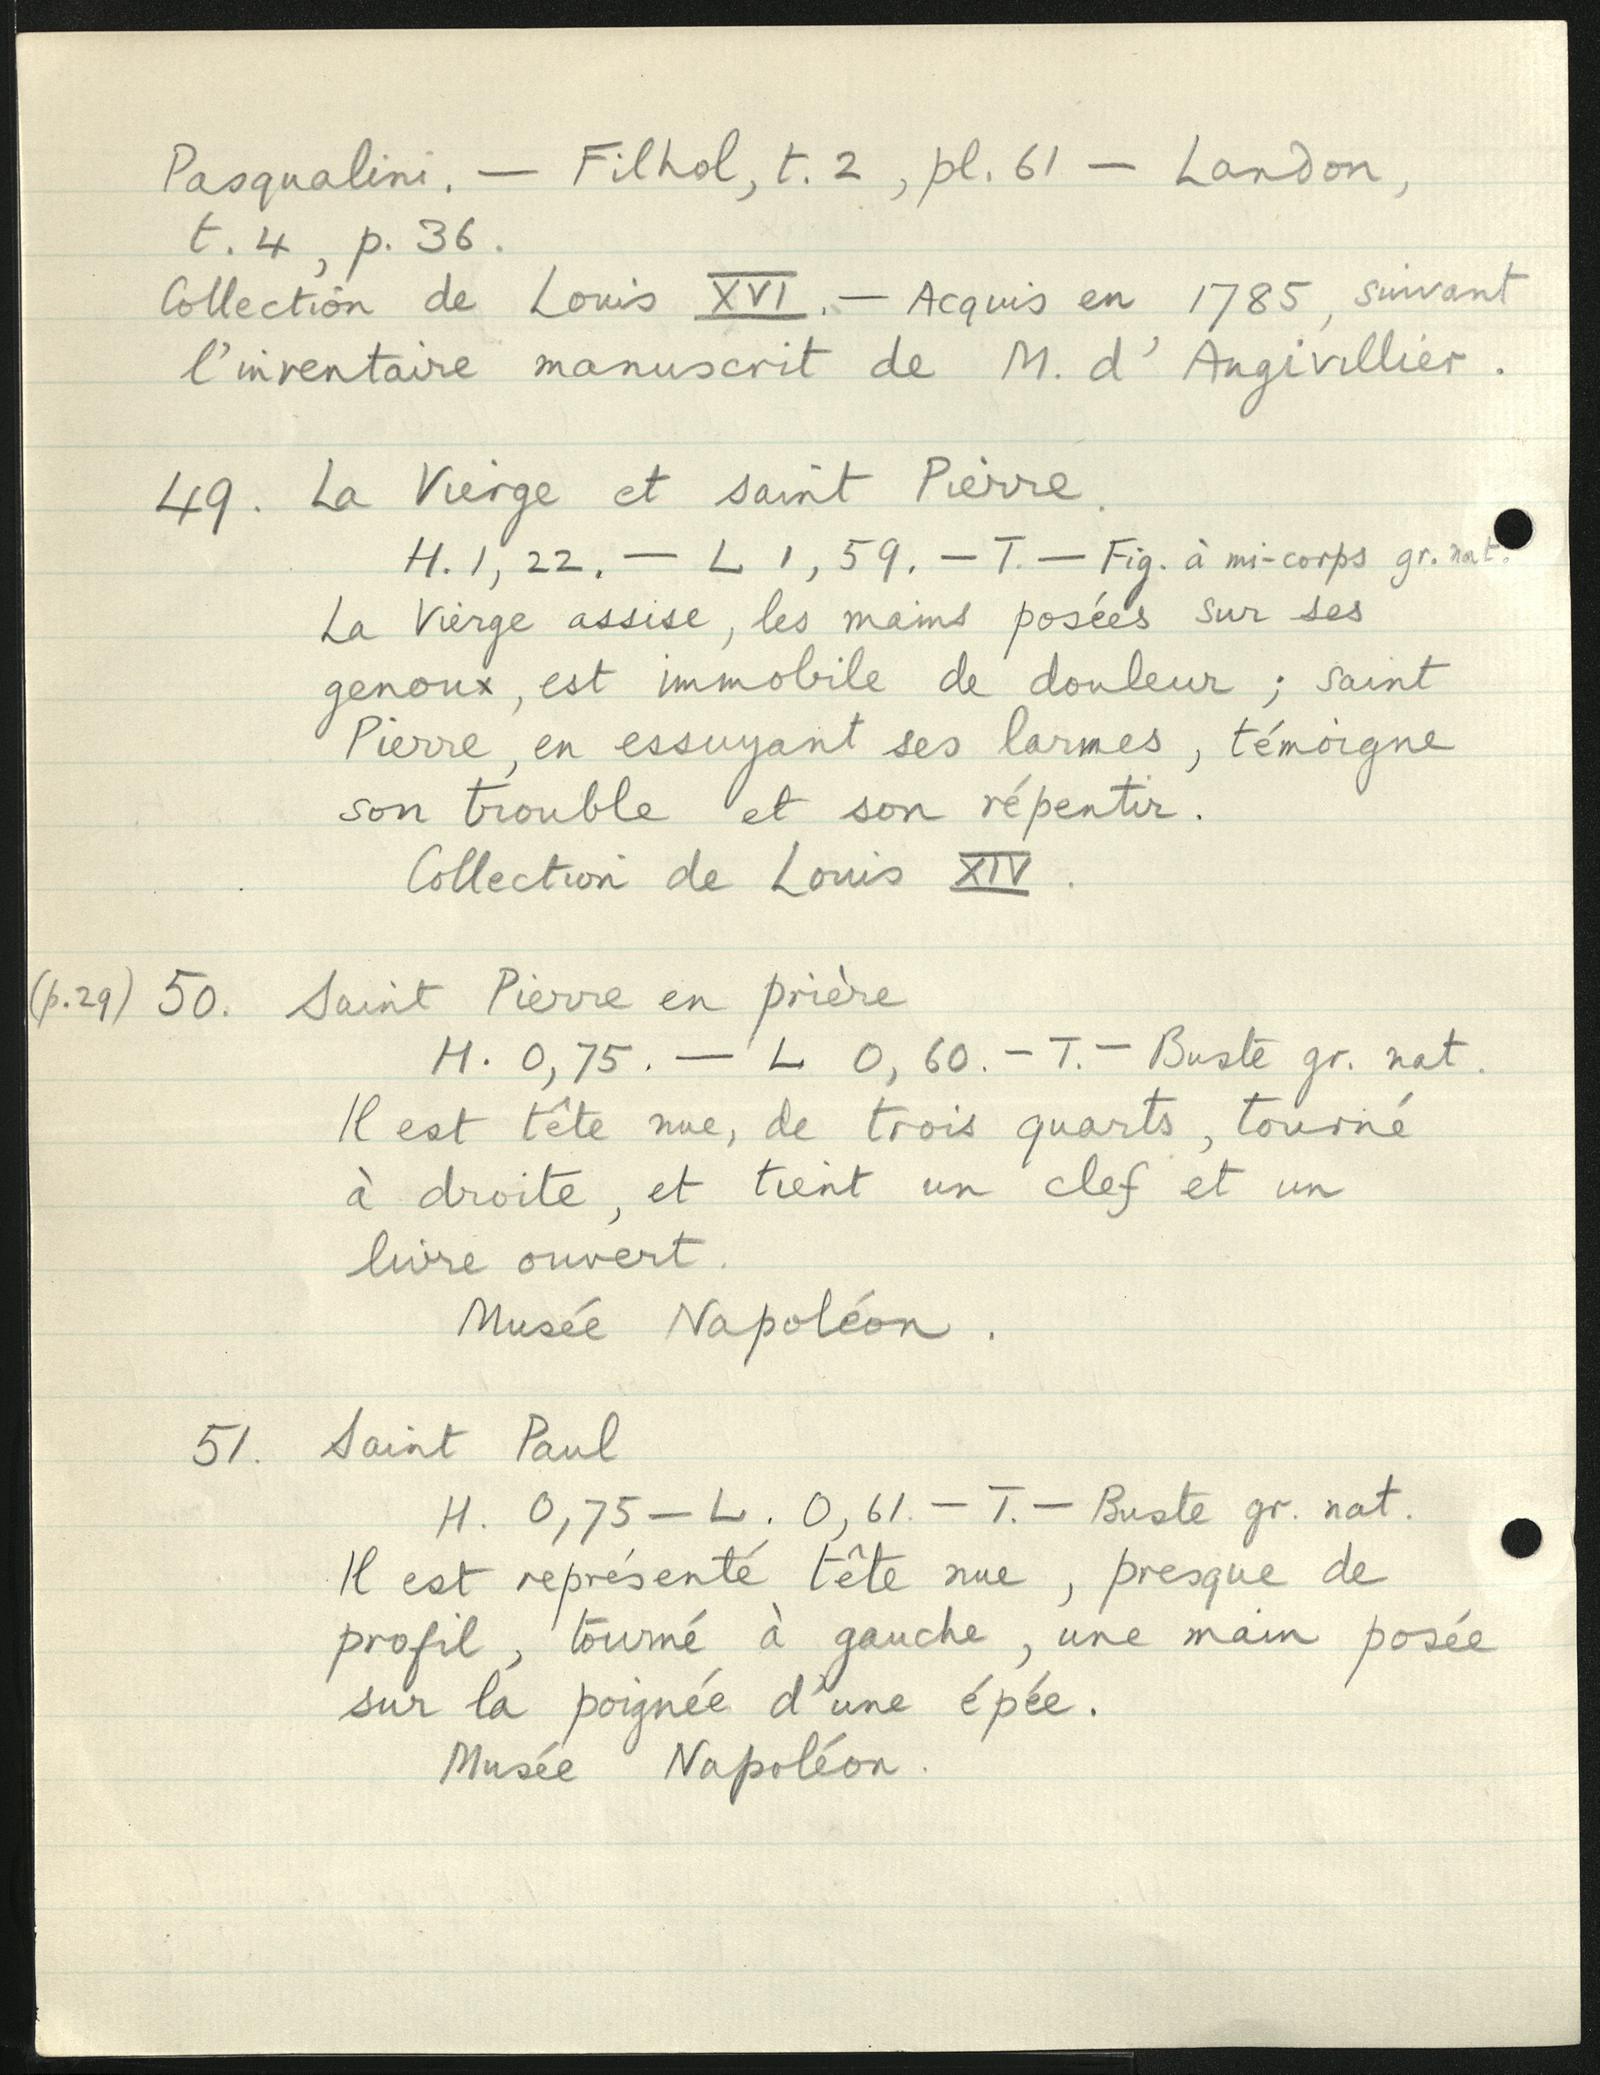 Pasqualini. — Filhol, t. 2, pl. 61 — Landon,
t. 4, p. 36.
Collection de Louis XVI. — Acquis en 1785, suivant
l'inventaire manuscrit de M. d'Angivillier.
49. La Vierge et saint Pierre.
H. 1,22. — L 1,59. — T. — Fig. à mi-corps gr. nat.
La Vierge assise, les mains posées sur ses
genoux, est immobile de douleur ; saint
Pierre, en essuyant ses larmes, témoigne
son trouble et son répentir.
Collection de Louis XIV.
(p.29) 50. Saint Pierre en prière
H. 0,75. — L 0,60. — T. — Buste gr. nat.
Il est tête nue, de trois quarts, tourné
à droite, et tient un clef et un
livre ouvert.
Musée Napoléon.
51. Saint Paul
H. 0,75 — L. 0,61. — T. — Buste gr. nat.
Il est représenté tête nue, presque de
profil, tourné à gauche, une main posée
sur la poignée d'une épée.
Musée Napoléon.